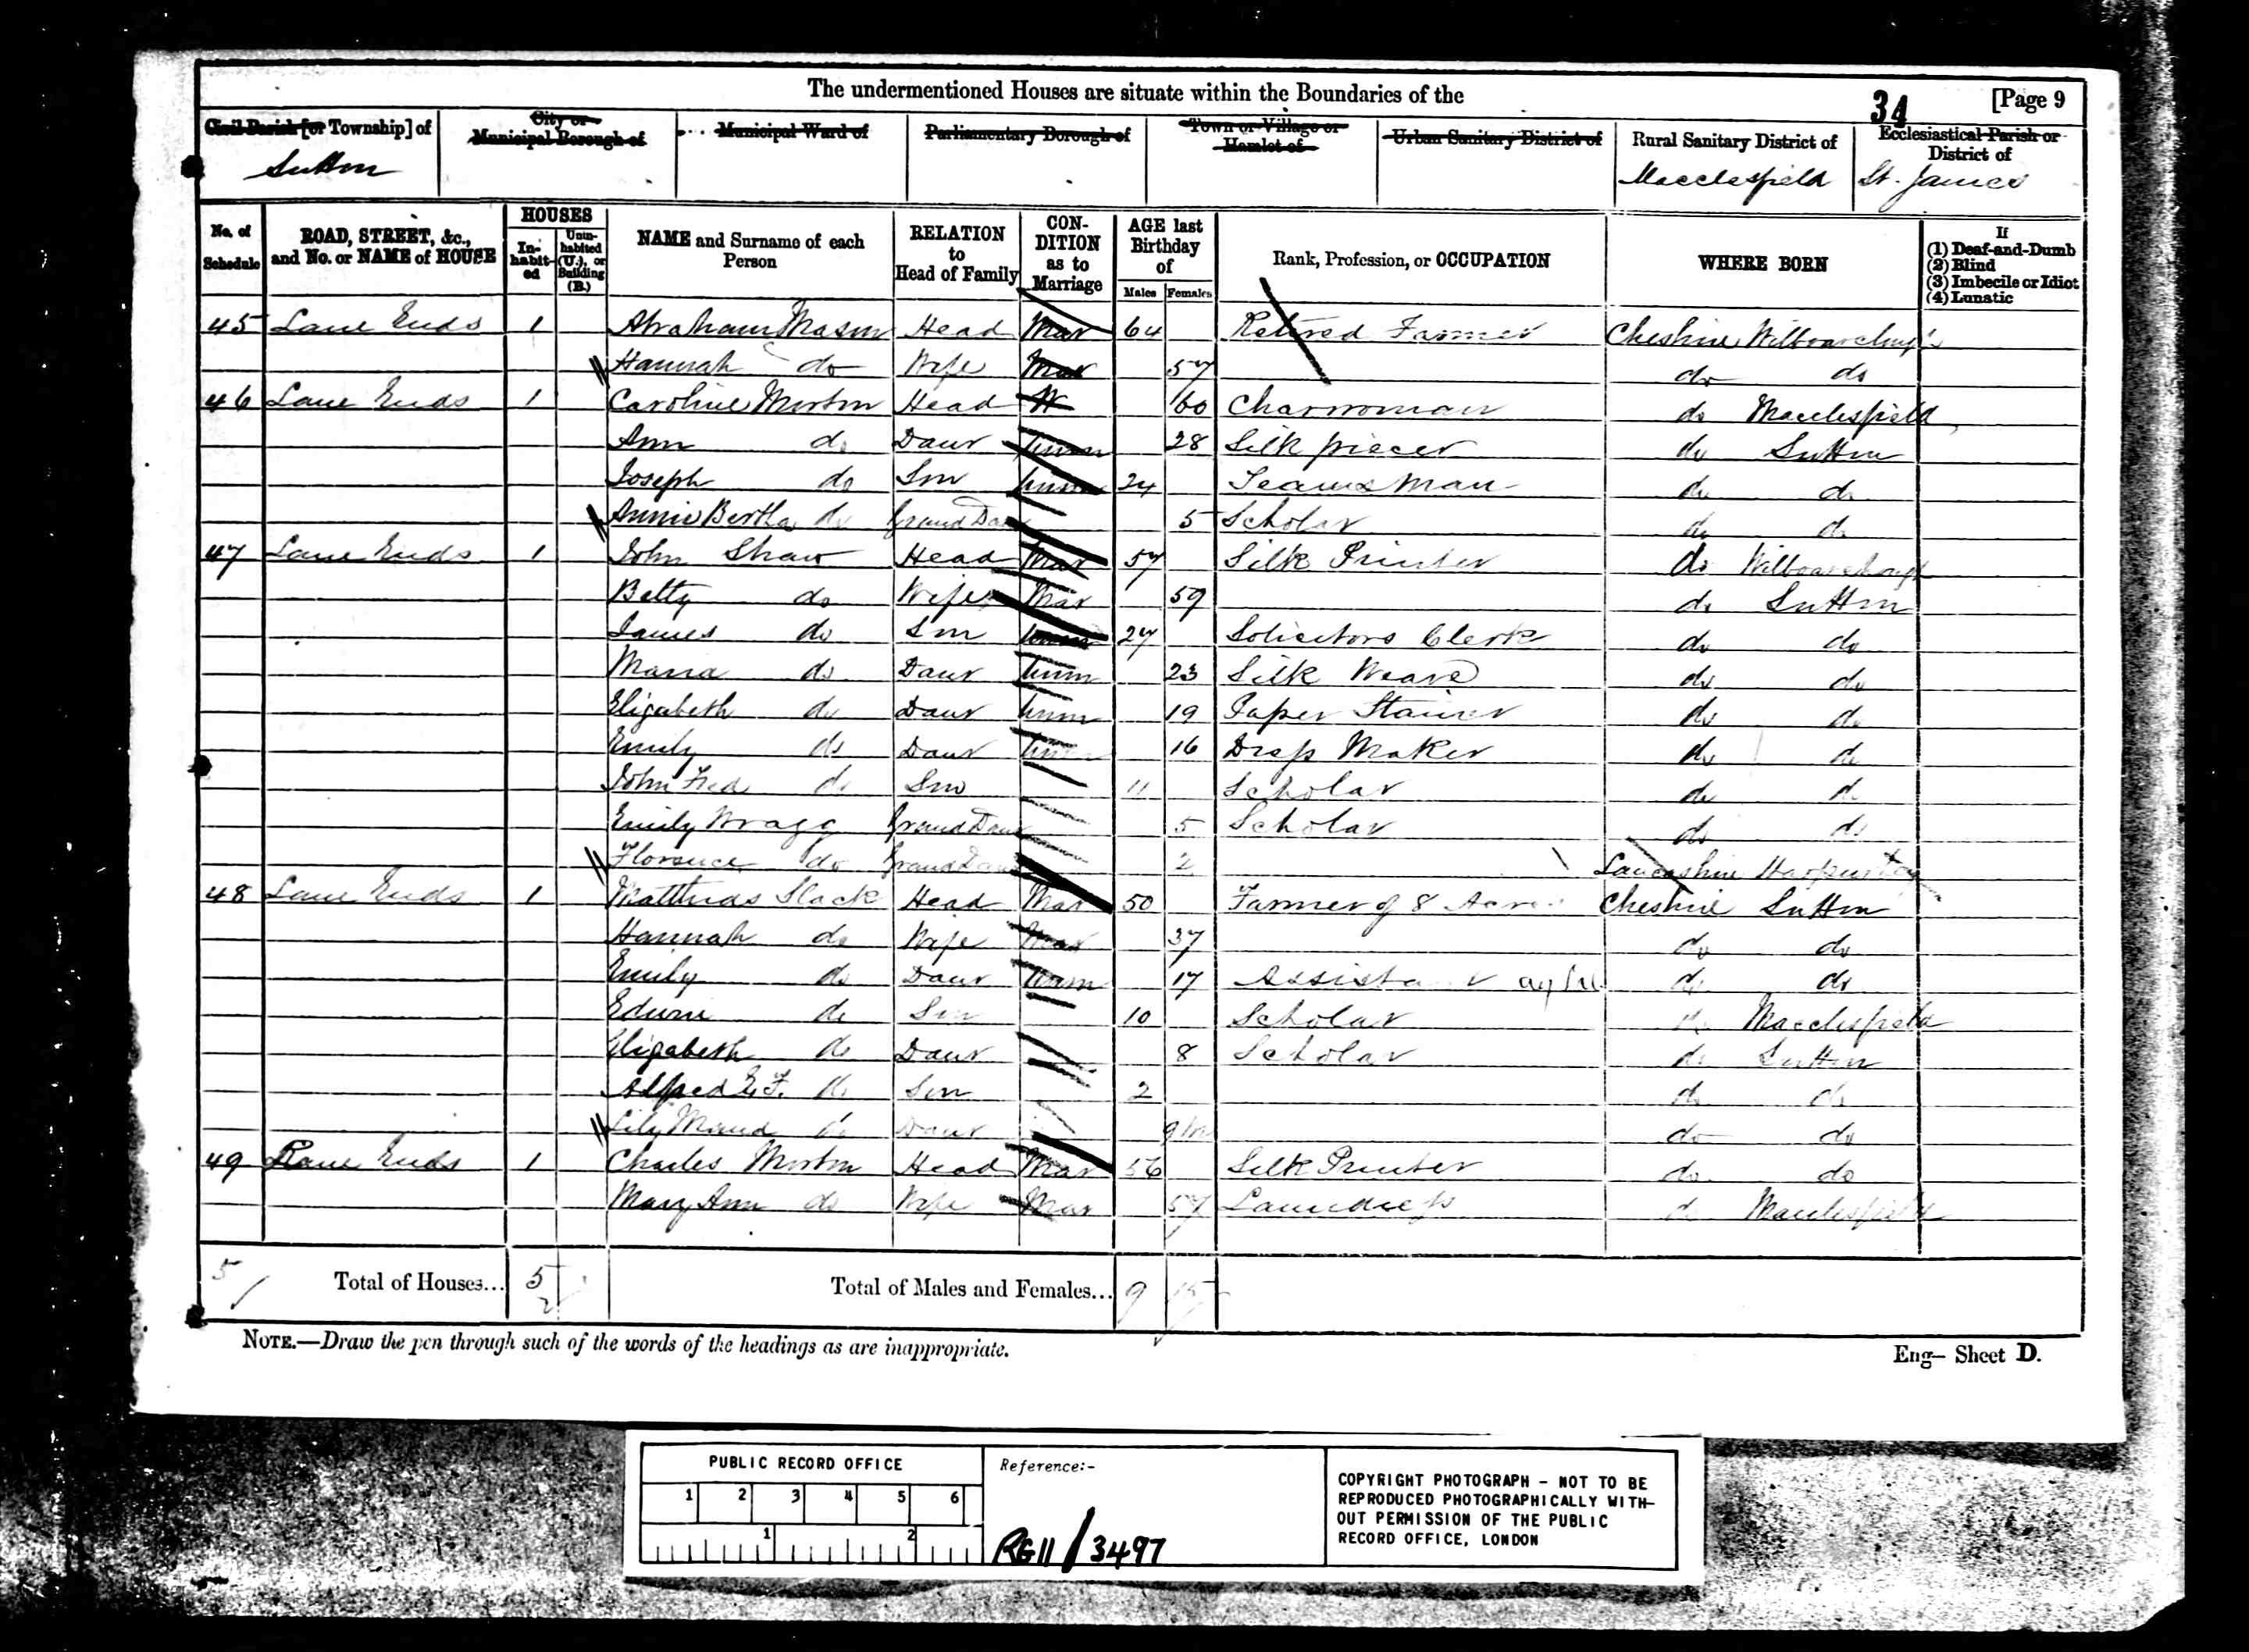 The undermentioned Houses are situate within the Boundaries of the
34 [Page 9
Civil Parish [or Township] of
City or Municipal Borough of
Municipal Ward of
Parliamentary Borough of
Town or Village or Hamlet of
Urban Sanitary District of
Rural Sanitary District of
Ecclesiastical Parish or District of
Sutton
Macclesfield
St. James
No. of Schedule
ROAD, STREET, &c., and No. or NAME of HOUSE
HOUSES
In-habit-ed
Unin-habited (U.), or Building (B.)
NAME and Surname of each Person
RELATION to Head of Family
CON-DITION as to Marriage
AGE last Birthday of
Males
Females
Rank, Profession, or OCCUPATION
WHERE BORN
If
(1) Deaf-and-Dumb
(2) Blind
(3) Imbecile or Idiot
(4) Lunatic
45 Lane Ends 1 Abraham Mason Head Mar 64 Retired Farmer Cheshire
Hannah do Wife Mar 57 do do
46 Lane Ends 1 Caroline Morton Head W 60 Charwoman do Macclesfield
Ann do Daur Unm 28 Silk piecer do Sutton
Joseph do Son Unm 24 Teams Man do do
Annie Bertha do Grand Daur 5 Scholar do do
47 Lane Ends 1 John Shaw Head Mar 57 Silk Printer do
Betty do Wife Mar 59 do Sutton
James do Son Unm 27 Solicitors Clerk do do
Maria do Daur Unm 23 Silk do do
Elizabeth do Daur Unm 19 Paper Stainer do do
Emily do Daur Unm 16 Maker do do
John Fred do Son 11 Scholar do do
Emily Wragg Grand Daur 5 Scholar do do
Florence do Grand Daur 2 Lancashire Harpurhey
48 Lane Ends 1 Matthias Slack Head Mar 50 Farmer of 8 Acres Cheshire Sutton
Hannah do Wife Mar 37 do do
Emily do Daur Unm 17 do do
Edwin do Son 10 Scholar do Macclesfield
Elizabeth do Daur 8 Scholar do Sutton
Alfred E. F. do Son 2 do do
Lily Maud do Daur 9/m do do
49 Lane Ends 1 Charles Morton Head Mar 56 Silk Printer do do
Mary Ann do Wife Mar 57 Laundress do Macclesfield
5 Total of Houses... 5 Total of Males and Females... 9 15
NOTE.—Draw the pen through such of the words of the headings as are inappropriate.
Eng— Sheet D.
PUBLIC RECORD OFFICE
1 2 3 4 5 6
1 2
Reference:-
RG11/3497
COPYRIGHT PHOTOGRAPH - NOT TO BE
REPRODUCED PHOTOGRAPHICALLY WITH-
OUT PERMISSION OF THE PUBLIC
RECORD OFFICE, LONDON